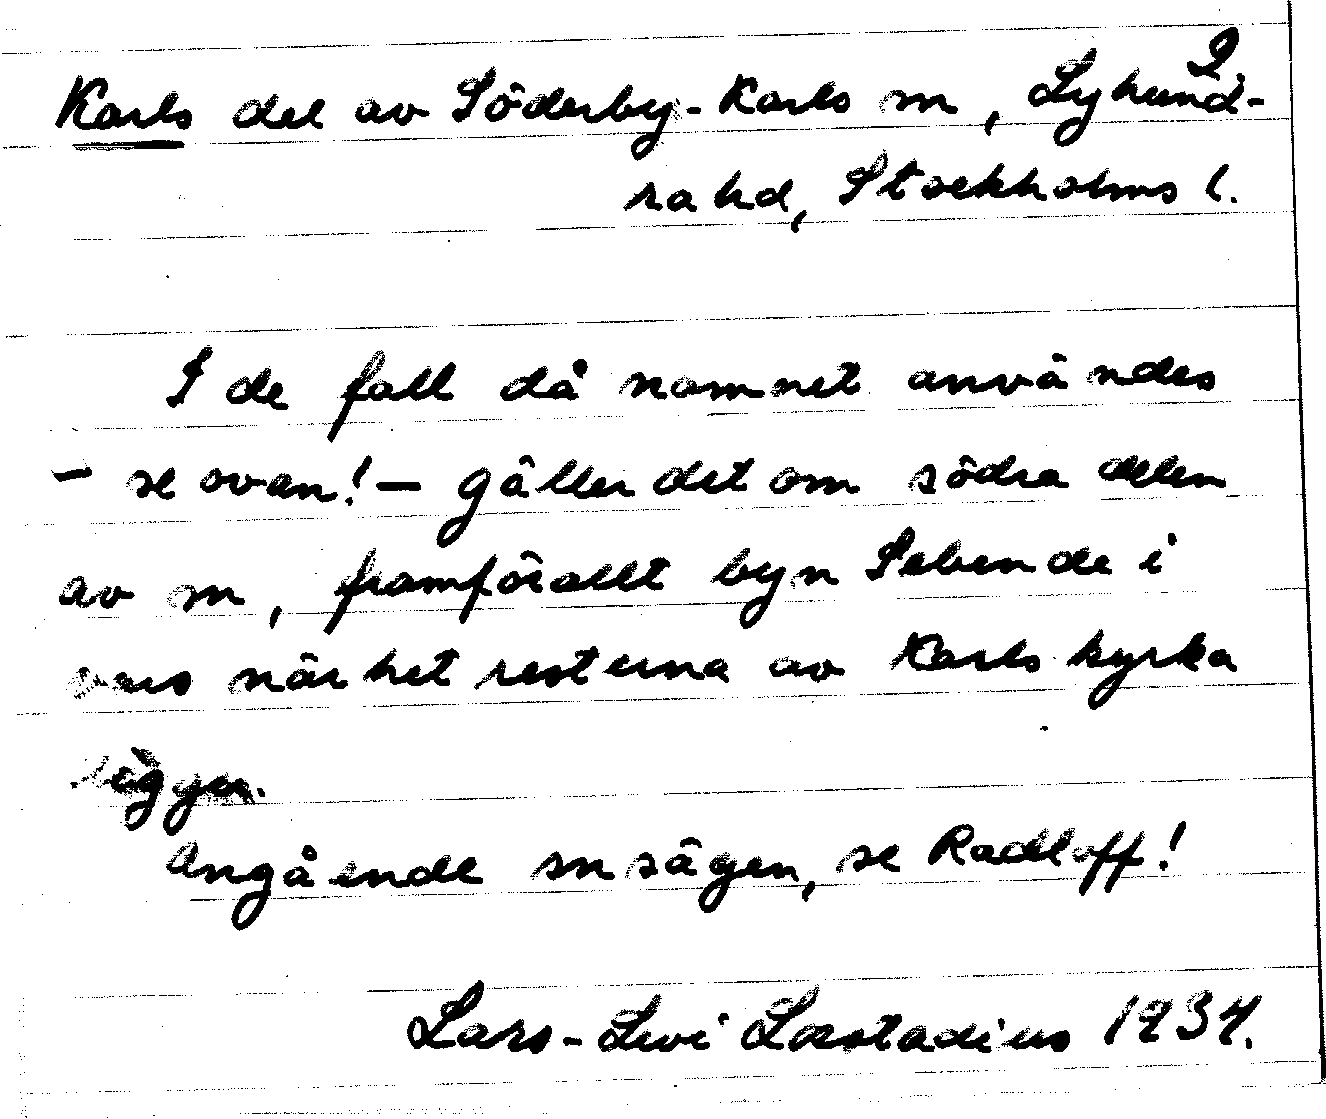 2.
Karls del av Söderby-Karls sn, Lyhund-
ra hd, Stockholms l.
I de fall då namnet användes
- se ovan! - gäller det om södra delen
av sn, framförallt byn Sebende i
vars närhet resterna av Karls kyrka
ligger.
Angående sn sägen, se Radloff!
Lars-Levi Læstadius 1934.